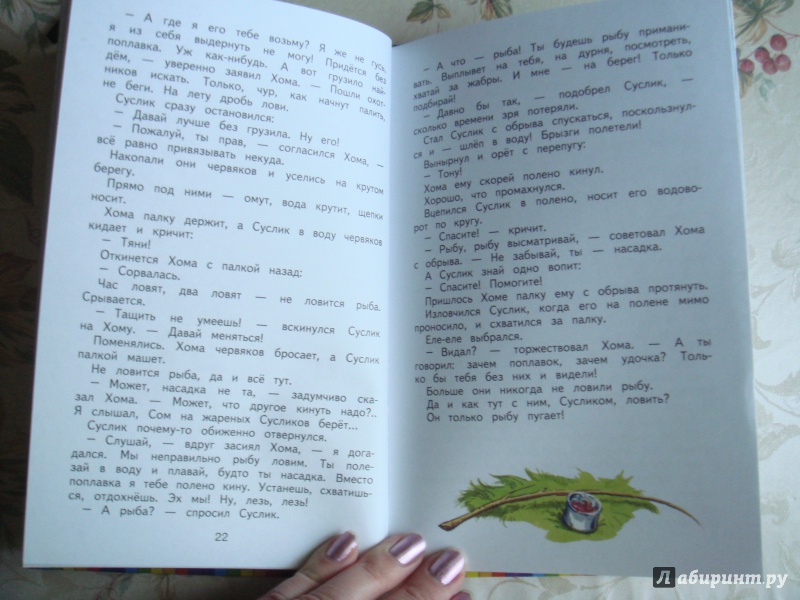 — А где я его тебе возьму? Я же не гусь,
я из себя выдернуть не могу! Придётся без
поплавка. Уж как-нибудь. А вот грузило най-
дём, — уверенно заявил Хома. — Пошли охот-
ников искать. Только, чур, как начнут палить,
не беги. На лету дробь лови.
Суслик сразу остановился:
— Давай лучше без грузила. Ну его!
— Пожалуй, ты прав, — согласился Хома, —
всё равно привязывать некуда.
Накопали они червяков и уселись на крутом
берегу.
Прямо под ними — омут, вода крутит, щепки
носит.
Хома палку держит, а Суслик в воду червяков
кидает и кричит:
— Тяни!
Откинется Хома с палкой назад:
— Сорвалась.
Час ловят, два ловят — не ловится рыба.
Срывается.
— Тащить не умеешь! — вскинулся Суслик
на Хому. — Давай меняться!
Поменялись. Хома червяков бросает, а Суслик
палкой машет.
Не ловится рыба, да и всё тут.
— Может, насадка не та, — задумчиво ска-
зал Хома. — Может, что другое кинуть надо?..
Я слышал, Сом на жареных Сусликов берёт...
Суслик почему-то обиженно отвернулся.
— Слушай, — вдруг засиял Хома, — я дога-
дался. Мы неправильно рыбу ловим. Ты поле-
зай в воду и плавай, будто ты насадка. Вместо
поплавка я тебе полено кину. Устанешь, схватишь-
ся, отдохнёшь. Эх мы! Ну, лезь, лезь!
— А рыба? — спросил Суслик.
22
— А что — рыба! Ты будешь рыбу примани-
вать. Выплывет на тебя, на дурня, посмотреть,
хватай за жабры. И мне — на берег! Только
подбирай!
— Давно бы так, — подобрел Суслик, —
сколько времени зря потеряли.
Стал Суслик с обрыва спускаться, поскользнул-
ся и — шлёп в воду! Брызги полетели!
Вынырнул и орёт с перепугу:
— Тону!
Хома ему скорей полено кинул.
Хорошо, что промахнулся.
Вцепился Суслик в полено, носит его водово-
рот по кругу.
— Спасите! — кричит.
— Рыбу, рыбу высматривай, — советовал Хома
с обрыва. — Не забывай, ты — насадка.
А Суслик знай одно вопит:
— Спасите! Помогите!
Пришлось Хоме палку ему с обрыва протянуть.
Изловчился Суслик, когда его на полене мимо
проносило, и схватился за палку.
Еле-еле выбрался.
— Видал? — торжествовал Хома. — А ты
говорил: зачем поплавок, зачем удочка? Толь-
ко бы тебя без них и видели!
Больше они никогда не ловили рыбу.
Да и как тут с ним, Сусликом, ловить?
Он только рыбу пугает!
Лабиринт.ру